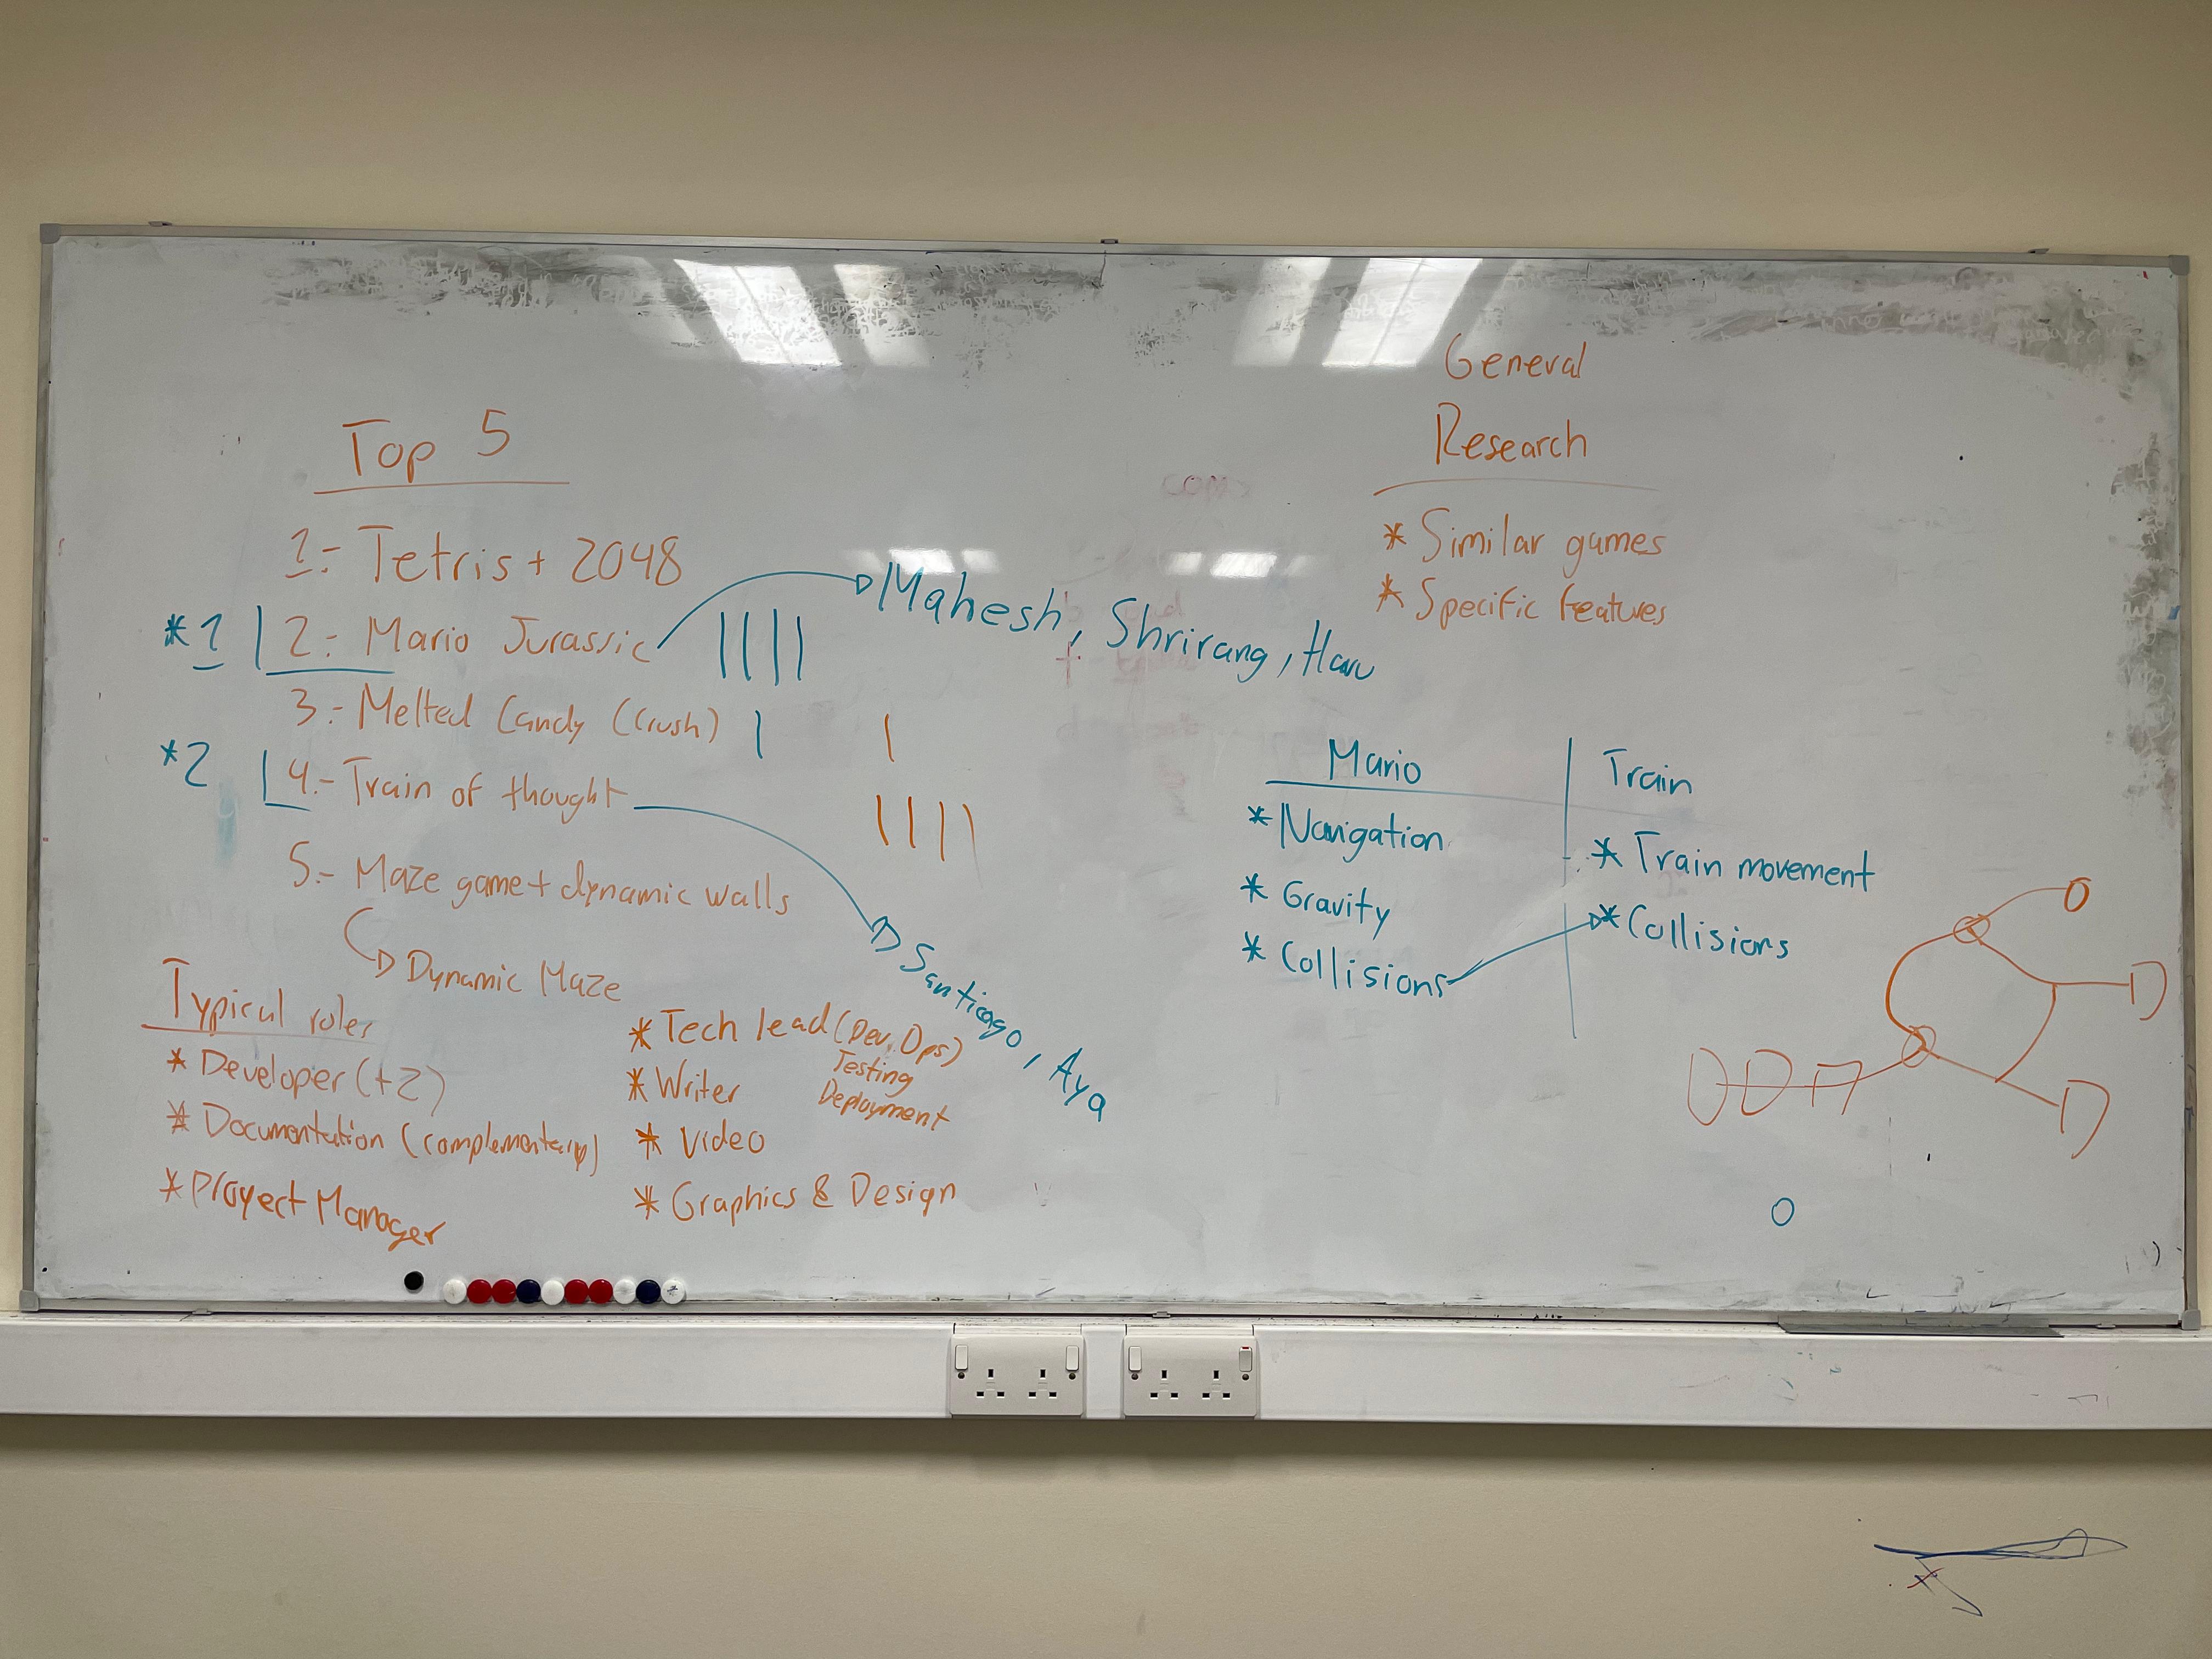 Top 5
1.- Tetris + 2048
*1 2.- Mario Jurassic
Mahesh, Shrirang, Haru
3.- Melted Candy (Crush)
*2 4.- Train of thought
Santiago, Aya
5.- Maze game + dynamic walls
Dynamic Maze
Typical roles
* Developer (+2)
* Documentation (complementary)
* Proyect Manager
* Tech lead (Dev. Ops)
Testing
Deployment
* Writer
* Video
* Graphics & Design
General
Research
* Similar games
* Specific features
Mario
* Navigation
* Gravity
* Collisions
Train
* Train movement
* Collisions